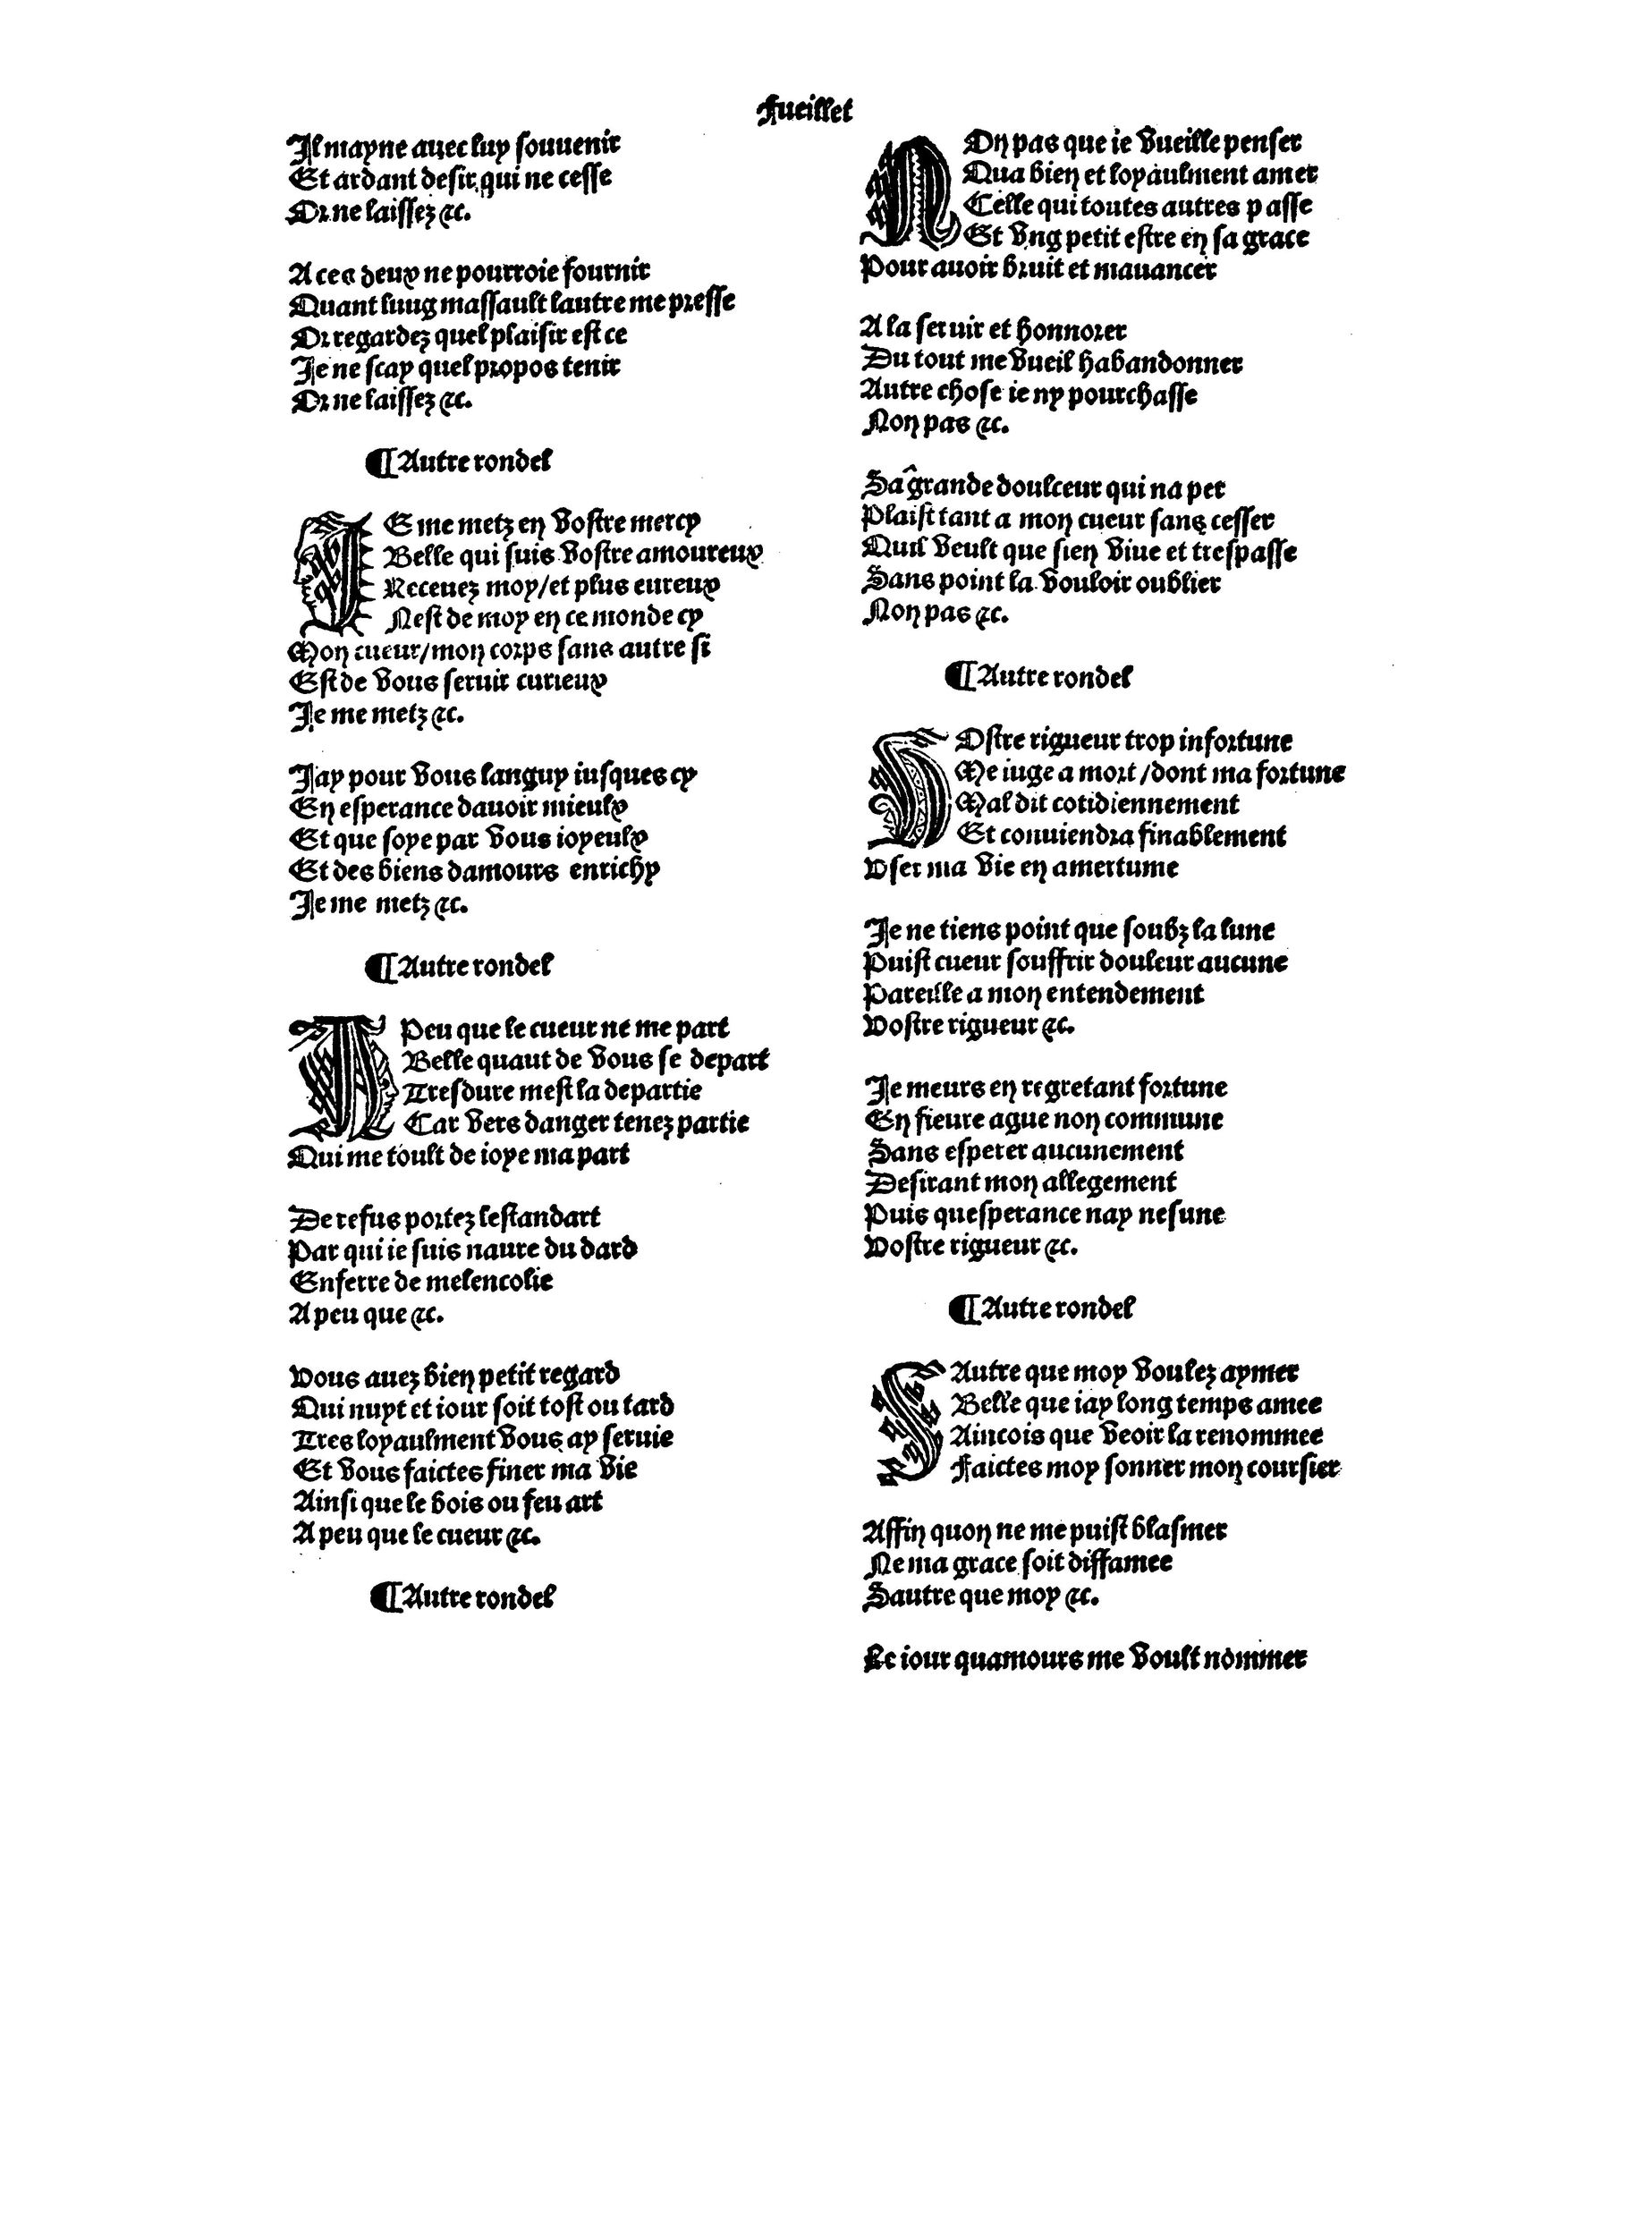 Fueillet
Il mayne auec luy souuenir
Et ardant desir qui ne cesse
Or ne laissez &c.
A ces deux ne pourroie fournir
Quant luug massault lautre me presse
Or regardez quel plaisir est ce
Je ne scay quel propos tenir
Or ne laissez &c.
¶ Autre rondel
IE me metz en vostre mercy
Belle qui suis vostre amoureux
Recevez moy/et plus eureux
Nest de moy en ce monde cy
Mon cueur/mon corps sans autre si
Est de vous seruir curieux
Je me metz &c.
Jay pour vous languy iusques cy
En esperance dauoir mieulx
Et que soye par vous ioyeulx
Et des biens damours enrichy
Je me metz &c.
¶ Autre rondel
A Peu que le cueur ne me part
Belle quaut de vous se depart
Tresdure mest la departie
Car vers danger tenez partie
Qui me toult de ioye ma part
De refus portez lestandart
Par qui ie suis naure du dard
Enferre de melencolie
A peu que &c.
Vous auez bien petit regard
Qui nuyt et iour soit tost ou tard
Tres loyaulment vous ay seruie
Et vous faictes finer ma vie
Ainsi que le bois ou feu art
A peu que le cueur &c.
¶ Autre rondel
NOn pas que ie vueille penser
Qua bien et loyaulment amer
Celle qui toutes autres passe
Et vng petit estre en sa grace
Pour auoir bruit et mauancer
A la seruir et honnorer
Du tout me vueil habandonner
Autre chose ie ny pourchasse
Non pas &c.
Sa grande doulceur qui na per
Plaist tant a mon cueur sans cesser
Quil veult que sien viue et trespasse
Sans point la vouloir oublier
Non pas &c.
¶ Autre rondel
VOstre rigueur trop infortune
Me iuge a mort/dont ma fortune
Mal dit cotidiennement
Et conuiendra finablement
Vser ma vie en amertume
Je ne tiens point que soubz la lune
Puist cueur souffrir douleur aucune
Pareille a mon entendement
Vostre rigueur &c.
Je meurs en regretant fortune
En fieure ague non commune
Sans esperer aucunement
Desirant mon allegement
Puis quesperance nay nesune
Vostre rigueur &c.
¶ Autre rondel
SAutre que moy voulez aymer
Belle que iay long temps amee
Aincois que veoir la renommee
Faictes moy sonner mon coursier
Affin quon ne me puist blasmer
Ne ma grace soit diffamee
Sautre que moy &c.
Le iour quamours me voult nommer